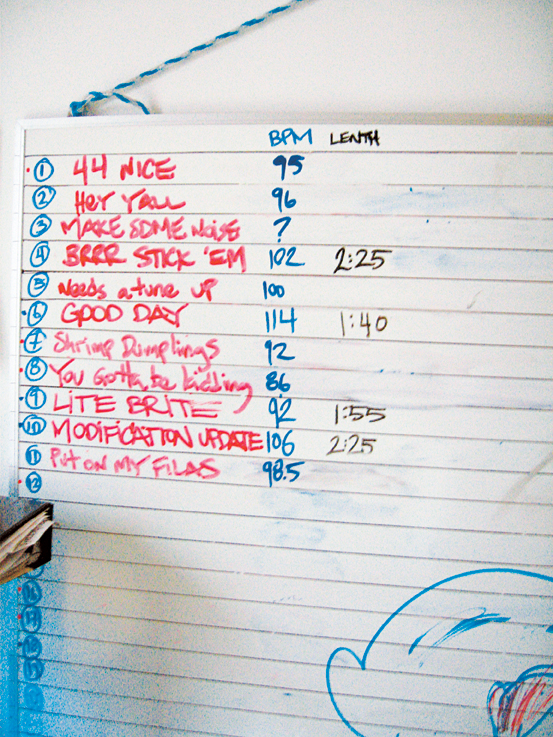 BPM LENTH
1 44 NICE 95
2 HEY YALL 96
3 MAKE SOME NOISE ?
4 BRRR STICK 'EM 102 2:25
5 Needs a tune up 100
6 GOOD DAY 114 1:40
7 Shrimp Dumplings 92
8 You Gotta be kidding 86
9 LITE BRITE 92 1:55
10 MODIFICATION UPDATE 106 2:25
11 Put ON MY FILAS 98.5
12